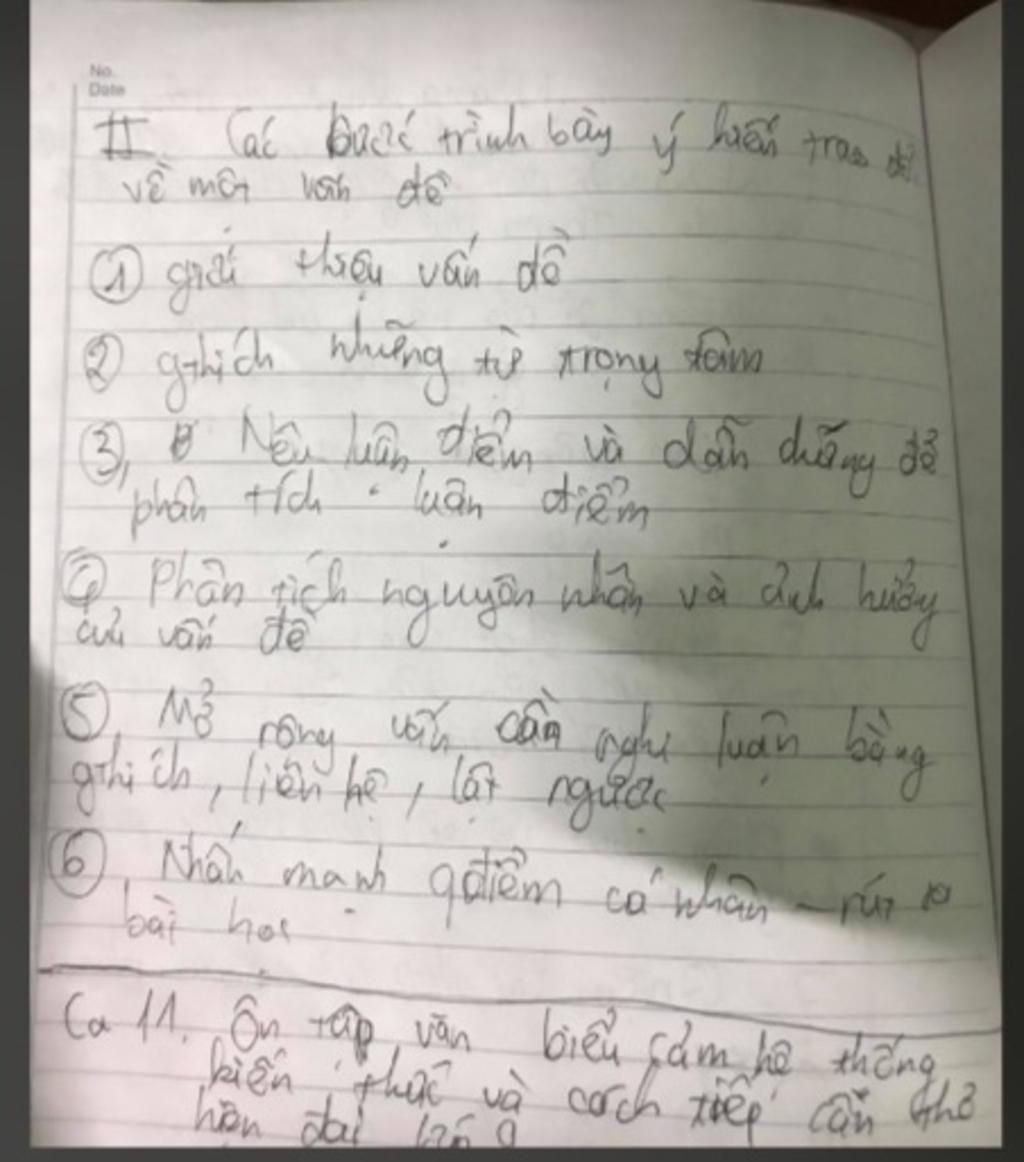 No.
Date
II. Các bước trình bày ý kiến trao đổi
về một vấn đề
① giới thiệu vấn đề
② gthích những từ trọng tâm
③, Nêu luận điểm và dẫn chứng để
phân tích luận điểm
④ Phân tích nguyên nhân và ảnh hưởng
của vấn đề
⑤, Mở rộng vấn cần nghị luận bằng
gthích, liên hệ, lật ngược
⑥, Nhấn mạnh qđiểm cá nhân - rút ra
bài học
Ca 11. Ôn tập văn biểu cảm hệ thống
kiến thức và cách tiếp cận thơ
hiện đại